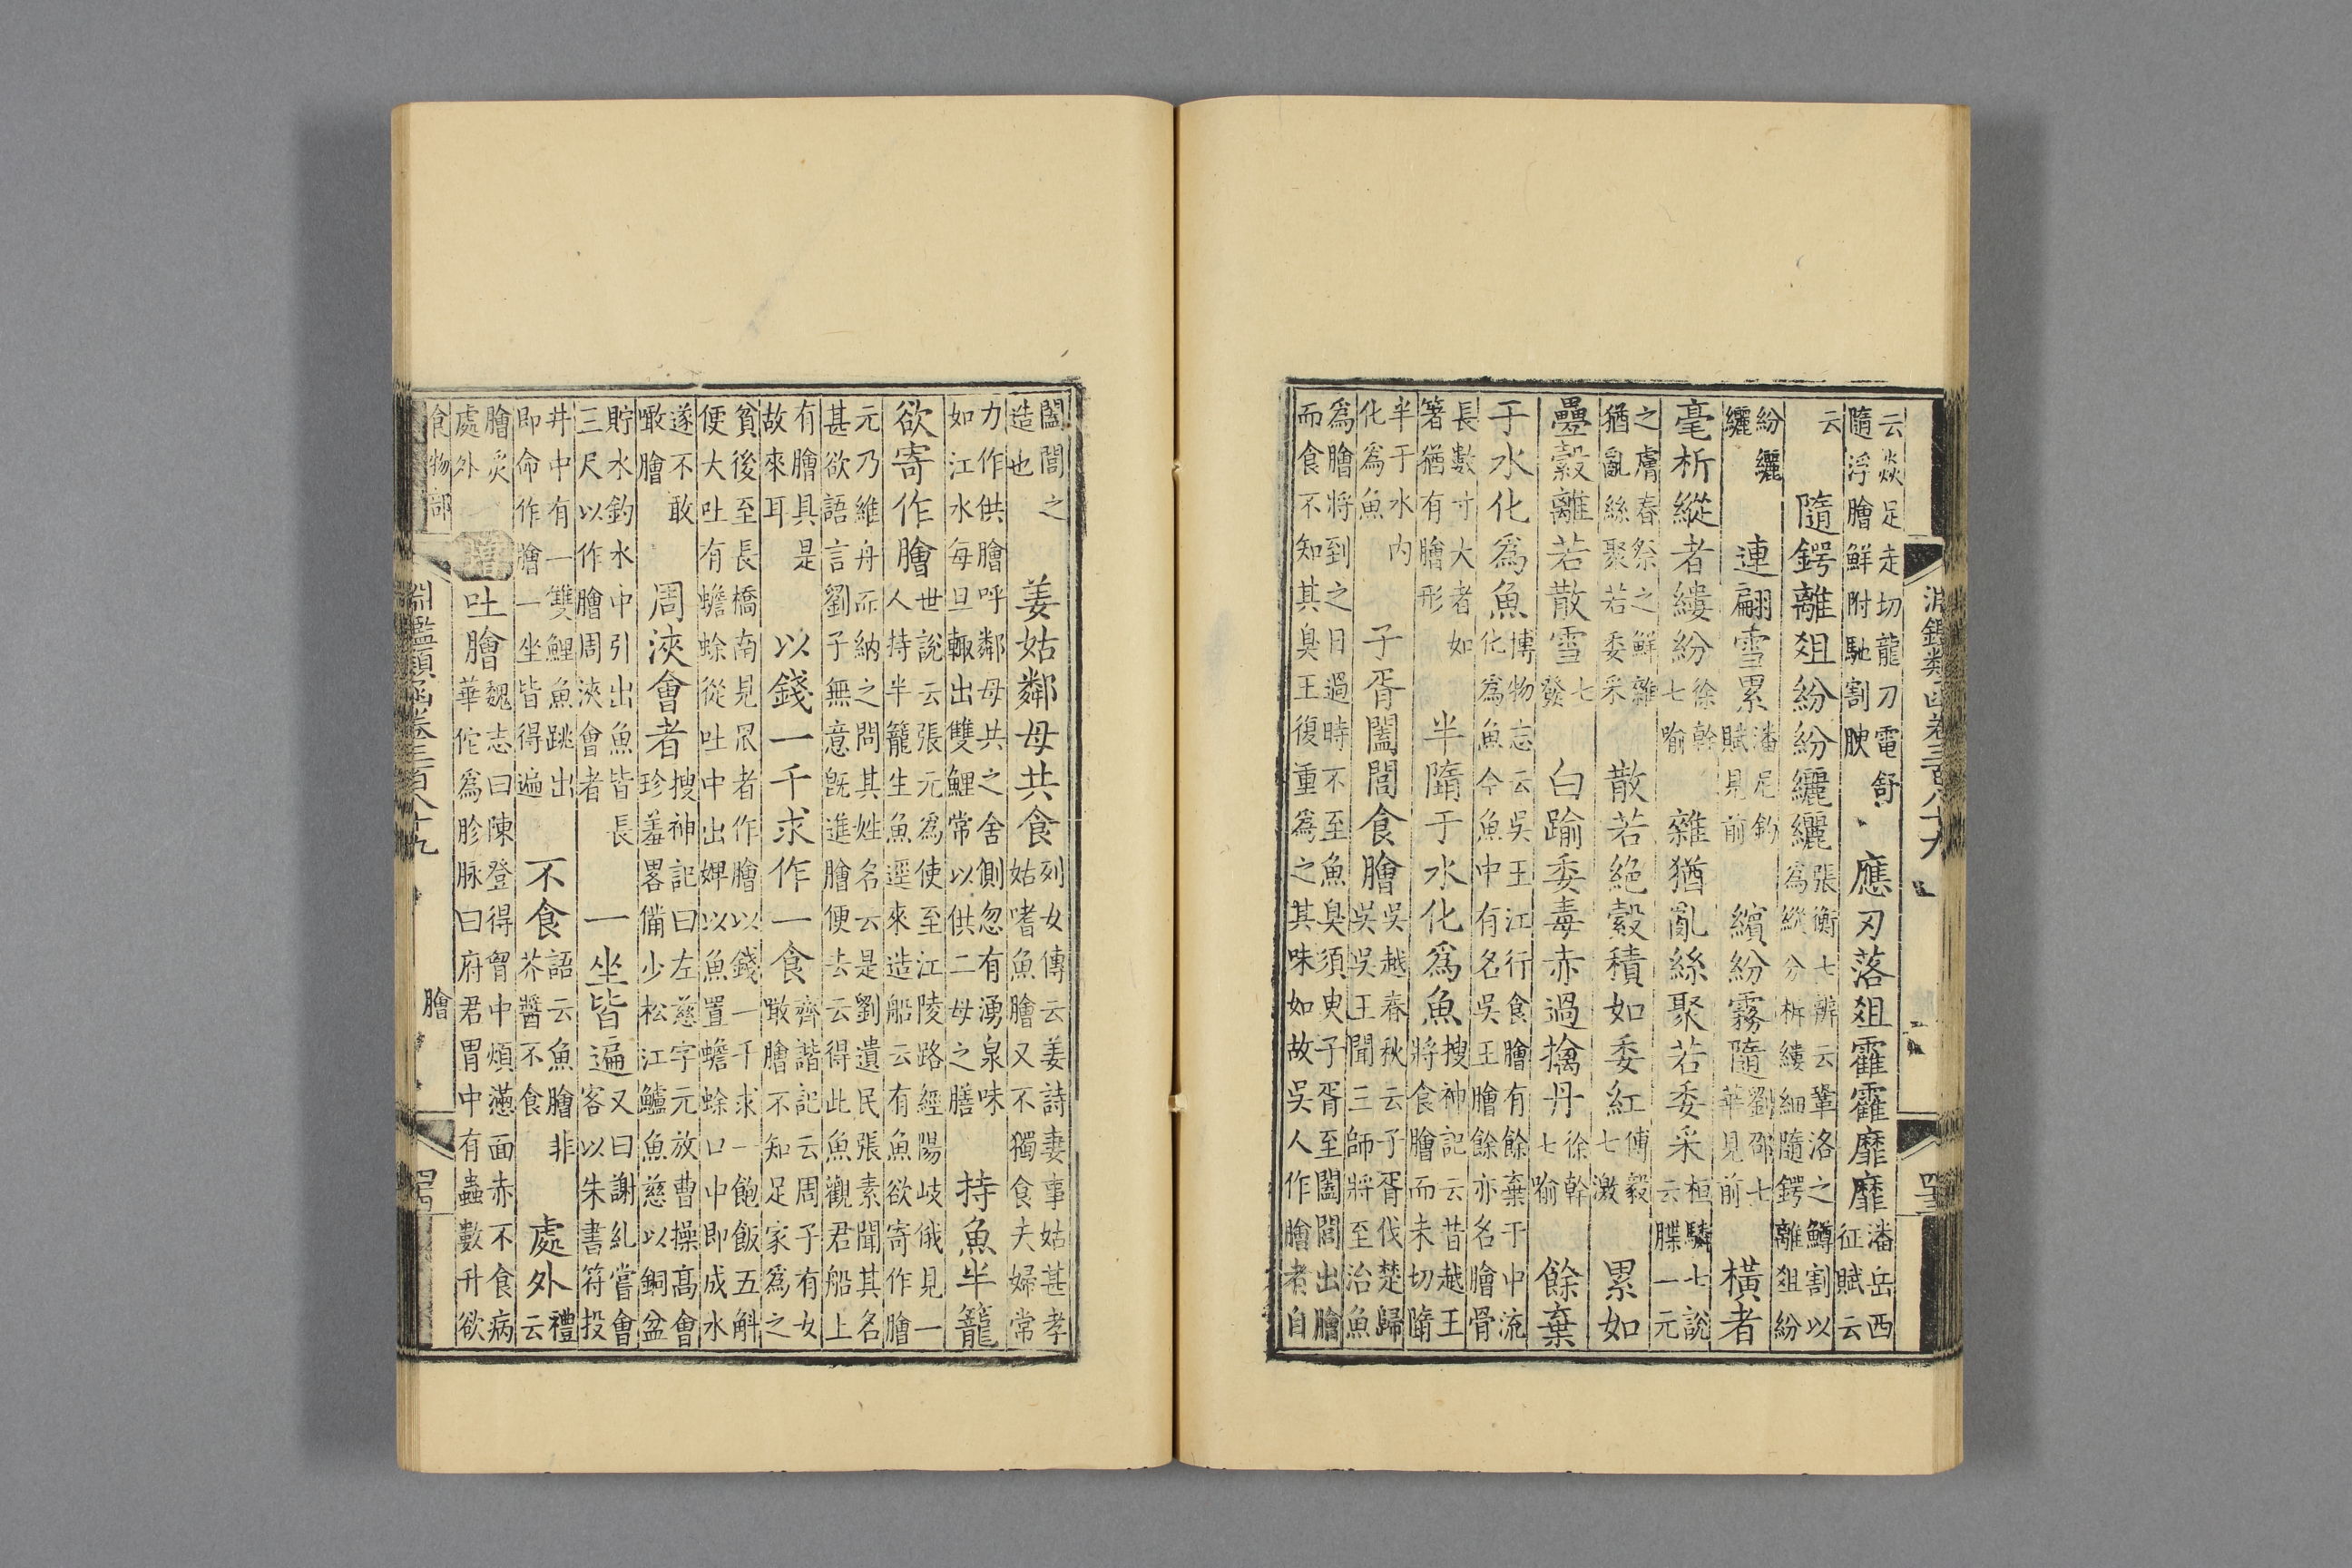 云焱足走切龍刀電舒
隨浮膾鮮附馳割腴
應刃落爼霍霍靡靡
潘岳西
征賦云
云
隨鍔離爼紛紛纚纚
張衡七辨云鞏洛之鱒割以
爲縱分析縷細隨鍔離爼紛
紛纚
纚
連翩雪累
潘尼釣
賦見前
繽紛霧隨
劉邵七
華見前
橫者
毫析縱者縷紛
徐幹
七喻
雜猶亂絲聚若委采
桓驎七說
云䐑一元
之膚春祭之鮮雜
猶亂絲聚若委采
散若絕縠積如委紅
傅毅
七激
累如
疊縠離若散雪
七
發
白踰委毒赤過擒丹
徐幹
七喻
餘棄
于水化爲魚
博物志云吳王江行食膾有餘棄于中流
化爲魚今魚中有名吳王膾餘亦名膾骨
長數寸大者如
箸猶有膾形
半隋于水化爲魚
搜神記云昔越王
將食膾而未切隋
半于水内
化爲魚
子胥闔閭食膾
吳越春秋云子胥伐楚歸
吳吳王聞三師將至治魚
爲膾將到之日過時不至魚臭須臾子胥至闔閭出膾
而食不知其臭王復重爲之其味如故吳人作膾者自
闔閭之
造也
姜姑鄰母共食
列女傳云姜詩妻事姑甚孝
姑嗜魚膾又不獨食夫婦常
力作供膾呼鄰母共之舍側忽有湧泉味
如江水每旦輙出雙鯉常以供二母之膳
持魚半籠
欲寄作膾
世說云張元爲使至江陵路經陽岐俄見一
人持半籠生魚逕來造船云有魚欲寄作膾
元乃維舟而納之問其姓名云是劉遺民張素聞其名
甚欲語言劉子無意旣進膾便去云得此魚觀君船上
有膾具是
故來耳
以錢一千求作一食
齊諧記云周子有女
噉膾不知足家爲之
貧後至長橋南見罛者作膾以錢一千求一飽飯五斛
便大吐有蟾蜍從吐中出婢以魚置蟾蜍口中即成水
遂不敢
噉膾
周浹會者
搜神記曰左慈字元放曹操高會
珍羞畧備少松江鱸魚慈以銅盆
貯水釣水中引出魚皆長
三尺以作膾周浹會者
一坐皆遍
又曰謝糺嘗會
客以朱書符投
井中有一雙鯉魚跳出
即命作膾一坐皆得遍
不食
語云魚膾非
芥醬不食
處外
禮
云
膾炙
處外
吐膾
魏志曰陳登得胷中煩懣面赤不食病
華佗爲胗脉曰府君胃中有蟲數升欲
淵鑑類函卷三百八十九
食物部
膾